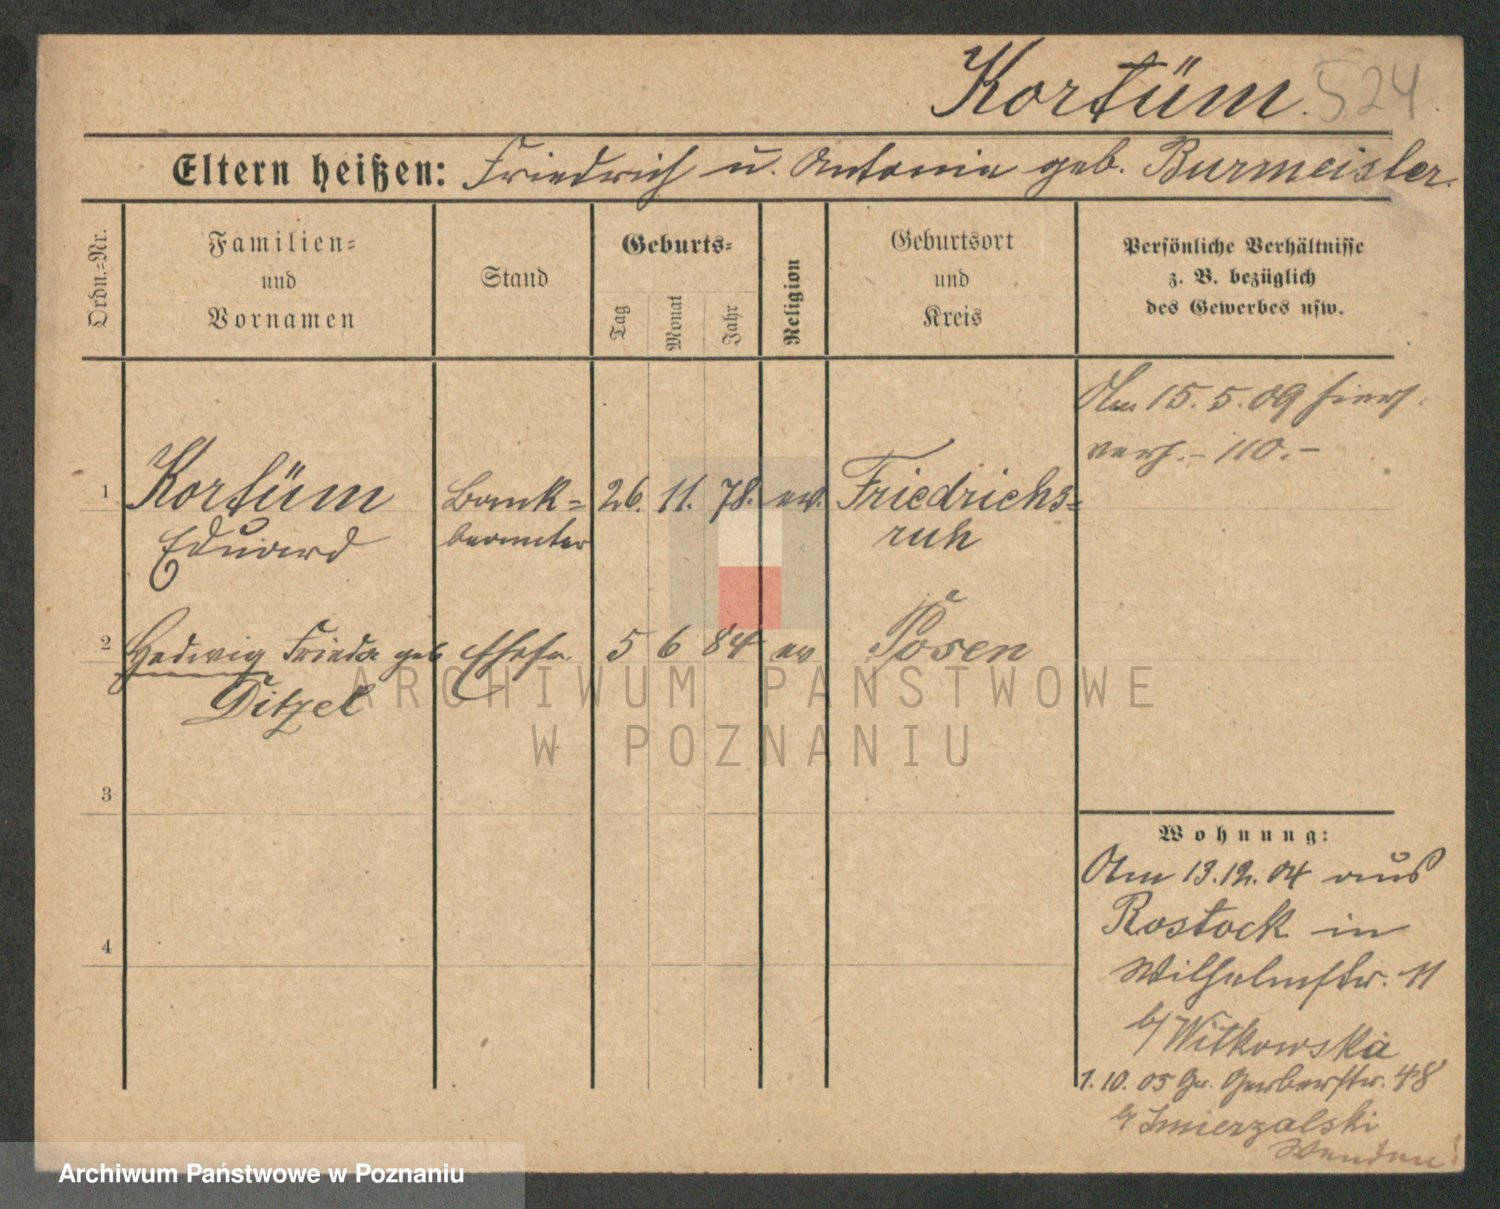 Kortüm. 524
Eltern heißen: Friedrich u. Antonie geb. Burmeister.
Ordn.=Nr.
Familien=
und
Vornamen
Stand
Geburts=
Tag
Monat
Jahr
Religion
Geburtsort
und
Kreis
Persönliche Verhältnisse
z. B. bezüglich
des Gewerbes usw.
Am 15.5.09 hier
verh. - 110. -
1 Kortüm Bank= 26. 11. 78. ev. Friedrichs=
Eduard beamter ruh
2 Hedwig Frieda geb Ehefr. 5 6 84 ev Posen
Ditzel
3
4
Wohnung:
Am 13.12.04 aus
Rostock in
Wilhelmstr. 11
b/ Witkowska
1.10.05 Gr. Gerberstr. 48
b/ Smierzalski
Wenden!
ARCHIWUM PAŃSTWOWE
W POZNANIU
Archiwum Państwowe w Poznaniu